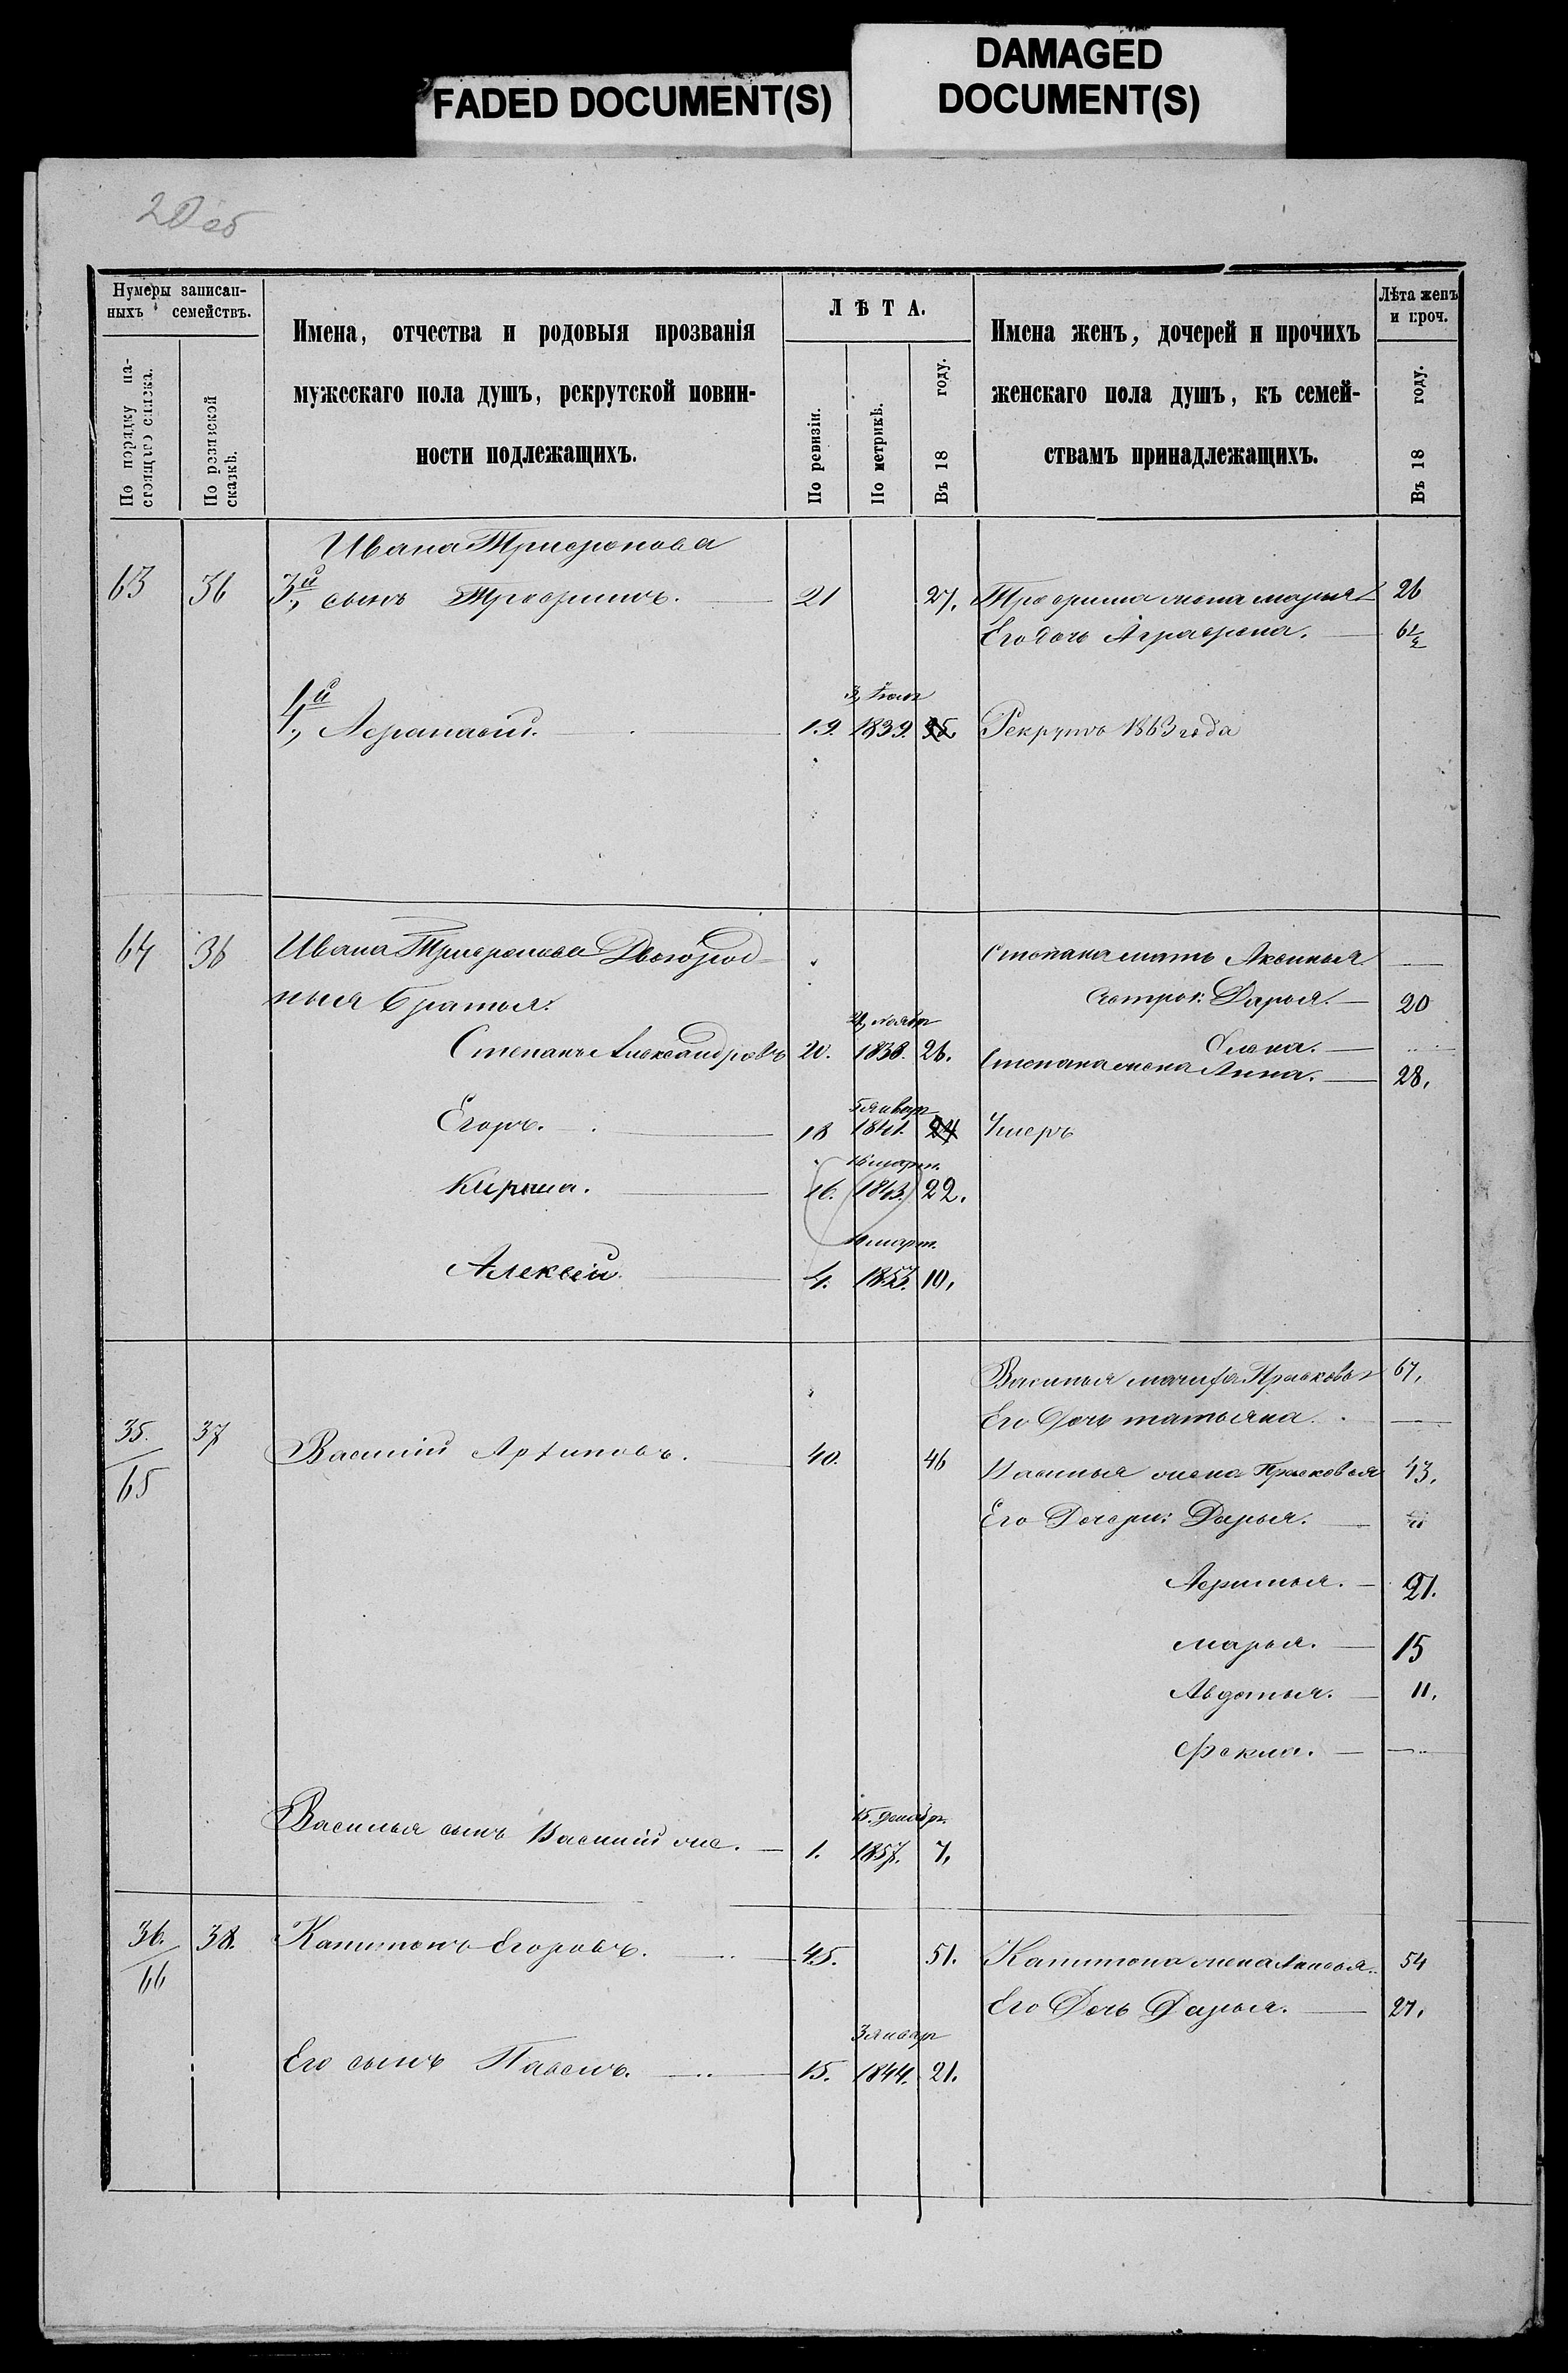 FADED DOCUMENT(S)
DAMAGED
DOCUMENT(S)
20 об
Нумеры записан-
ныхъ семействъ.
По порядку на-
стоящаго списка.
По ревизской
сказкѣ.
Имена, отчества и родовыя прозванія
мужескаго пола душъ, рекрутской повин-
ности подлежащихъ.
ЛѢТА.
По ревизіи.
По метрикѣ.
Въ 18 году.
Имена женъ, дочерей и прочихъ
женскаго пола душъ, къ семей-
ствамъ принадлежащихъ.
Лѣта женъ
и проч.
Въ 18 году.
Ивана Трифонова
63 36 3й, сынъ Трофимъ. 21 27, Трофима жена Марья 26
Его дочь Аграфена. 6½
3, Іюля
4й, Афанасій. 19. 1839. 25 Рекрутъ 1863 года
64 36 Ивана Трифонова Двоюрод-
ныя Братья:
Степана мать Аксинья
сестры: Дарья. 20
21, ноябр
Степанъ Александровъ 20. 1838. 26. Елена.
Степана жена Анна. 28,
5 январ
Егоръ. 18 1841. 24 Умеръ
16 март.
Кирила. 16. 1843. 22.
март.
Алексѣй. 4. 1855. 10,
Василья мачиха Прасковья 67,
Его дочь Татьяна.
35. 37 Василій Архиповъ. 40. 46 Василья жена Прасковья 43,
65
Его Дочери: Дарья.
Афимья. 21.
Марья. 15
Авдотья. 11,
Фекла.
15. декабр.
Василья сынъ Василій же. 1. 1857. 7,
36. 38. Капитонъ Егоровъ. 45. 51. Капитона жена 54
66
Его Дочь Дарья. 27,
3 январ
Его сынъ Павелъ. 15. 1844. 21.